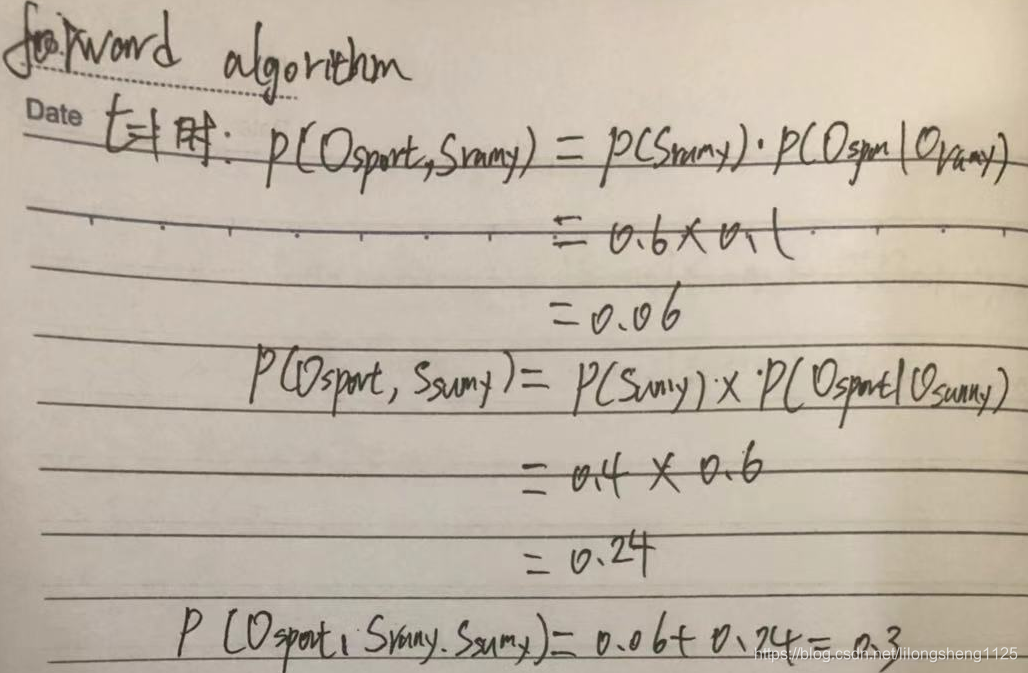 forward algorithm
Date t=1时: P(Osport,Srainy) = P(Srainy)·P(Ospor|Orainy)
= 0.6×0.1
= 0.06
P(Osport, Ssunny) = P(Sunny)·×·P(Osport|Osunny)
= 0.4 × 0.6
= 0.24
P(Osport, Srainy.Ssunny) = 0.06+0.24=0.3
https://blog.csdn.net/lilongsheng1125